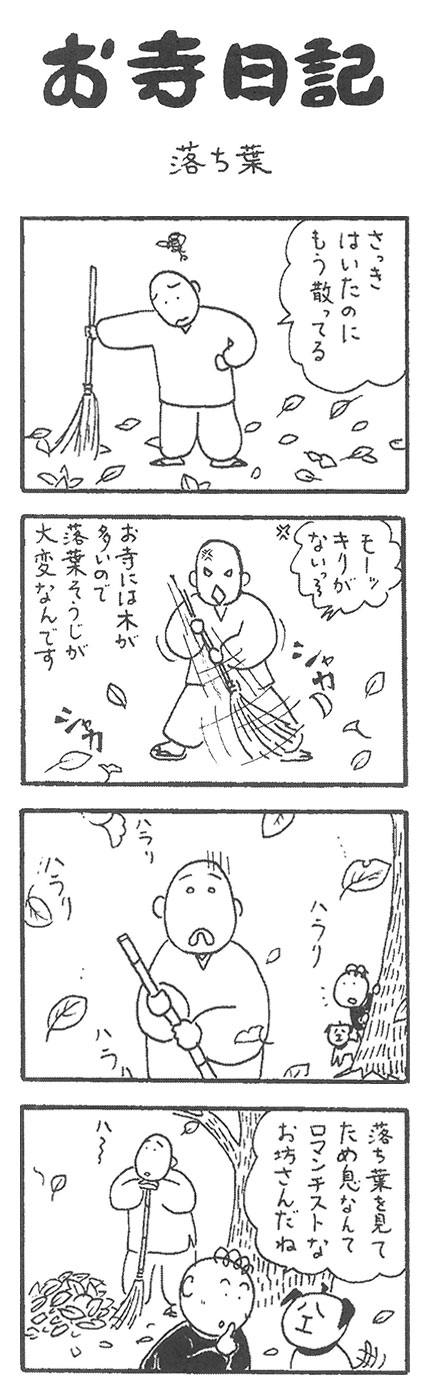 お寺日記
落ち葉
さっき
はいたのに
もう散ってる
モーッ
キリが
ないっ
お寺には木が
多いので
落葉そうじが
大変なんです
シャカ
シャカ
ハラリ
ハラリ
ハラリ
ハラ
落ち葉を見て
ため息なんて
ロマンチストな
お坊さんだね
ハ〜